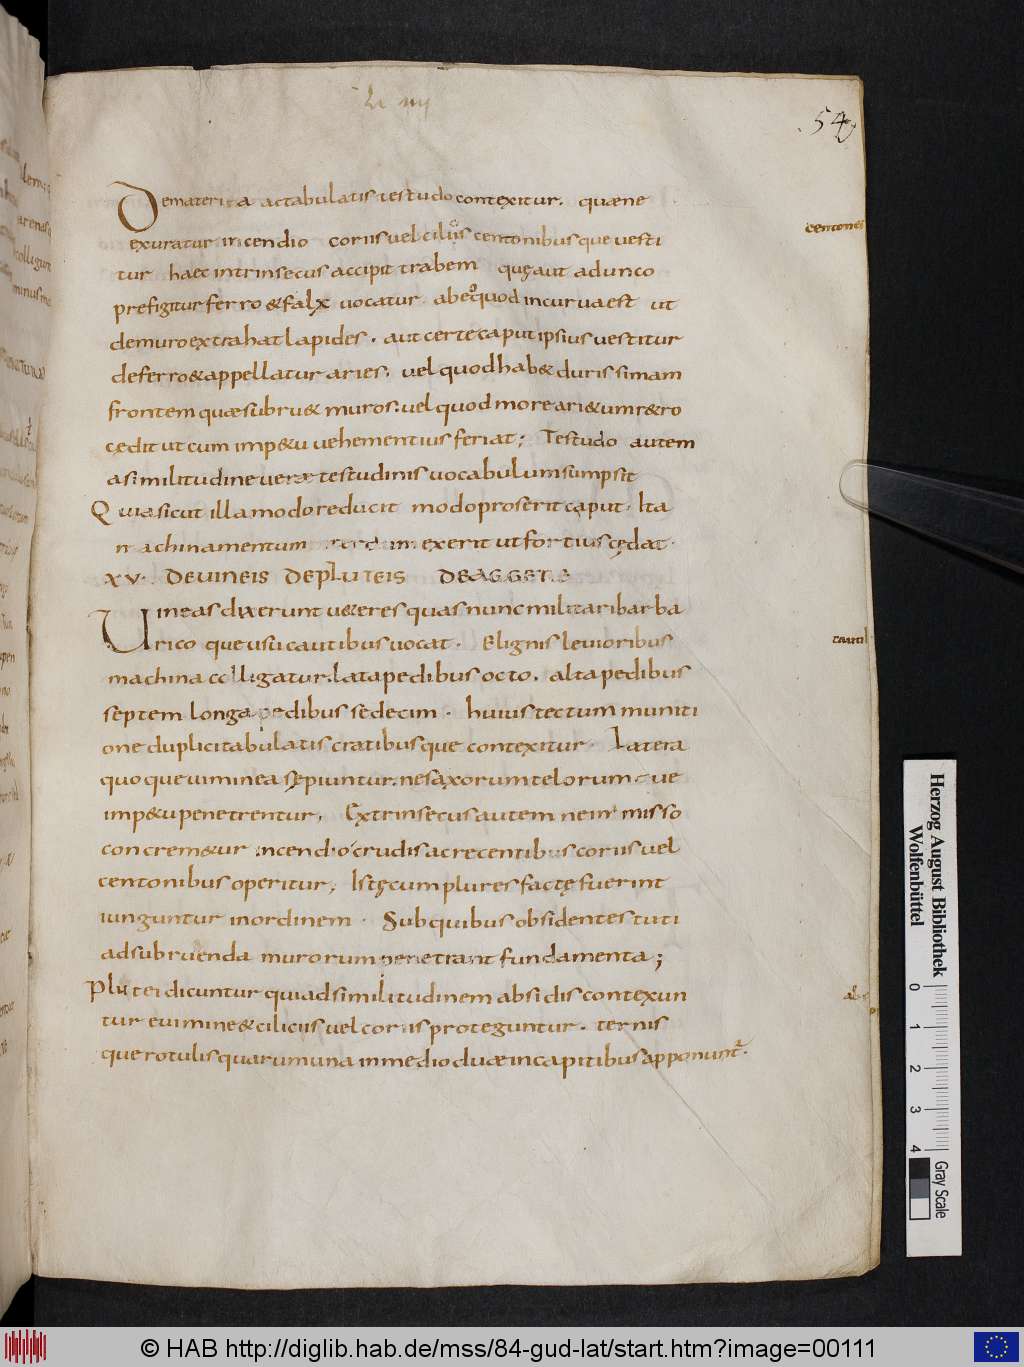 Li iiii
54
Demateria actabulatis testudo contexitur. quaene
centones
exuratur incendio coriis vel ciliciis centonibusque vesti
tur haec intrinsecus accipit trabem quę aut adunco
prefigitur ferro & falx vocatur ab eo quod incurva est ut
de muro extrahat lapides. aut certe caput ipsius vestitur
de ferro & appellatur aries. vel quod hab& durissimam
frontem quae subru& muros. vel quod more ari&um r&ro
cędit ut cum imp&u vehementius feriat; Testudo autem
a similitudine verae testudinis vocabulum sumpsit
Quia sicut illa modo reducit modo proserit caput. Ita
machinamentum exerit ut fortius cędat.
XV. DE VINEIS DE PLUTEIS DE AGGERE
Vineas dixerunt v&eres quas nunc militari barba
rico que usu cautibus vocat. E lignis levioribus
cautib
machina colligatur. lata pedibus octo. alta pedibus
septem longa pedibus sedecim. huius tectum muniti
one duplici tabulatis cratibusque contexitur. Latera
quoque viminea sępiuntur. ne saxorum telorumque
imp&u penetrentur, Extrinsecus autem ne inmisso
concrem&ur incendio crudis ac recentibus coriis vel
centonibus operitur; Istę cum plures factę fuerint
iunguntur in ordinem. Sub quibus obsidentes tuti
ad subruenda murorum penetrant fundamenta;
Plutei dicuntur qui ad similitudinem absidis contexun
tur e vimine & ciliciis vel coriis proteguntur. ternis
que rotulis quarum una in medio duae in capitibus apponunt.
Herzog August Bibliothek
Wolfenbüttel
0 1 2 3 4
Gray Scale
© HAB http://diglib.hab.de/mss/84-gud-lat/start.htm?image=00111